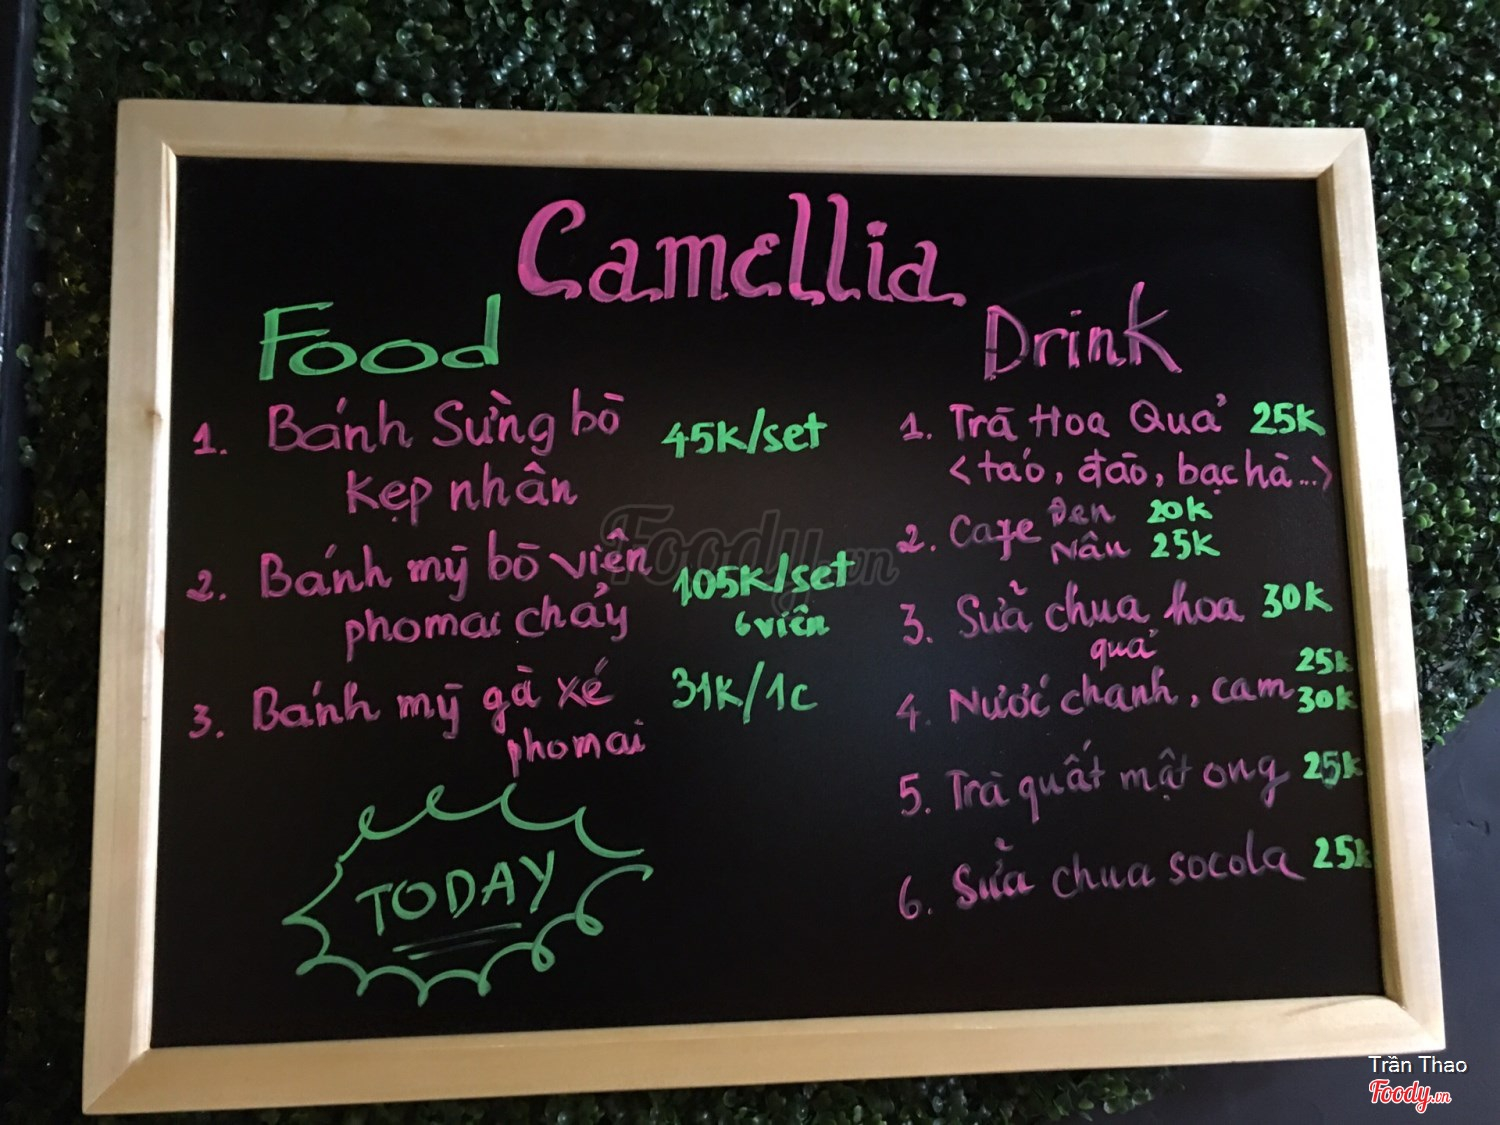 Camellia
Food
1. Bánh Sừng bò 45k/set
kẹp nhân
2. Bánh mỳ bò viên 105k/set
phomai chảy 6 viên
3. Bánh mỳ gà xé 31k/1c
phomai
TODAY
Drink
1. Trà Hoa Quả 25k
<táo, đào, bạc hà...>
2. Cafe Đen 20k
Nâu 25k
3. Sữa chua hoa 30k
quả
25k
4. Nước chanh, cam 30k
5. Trà quất mật ong 25k
6. Sữa chua socola 25k
Foody.vn
Trần Thao
Foody.vn